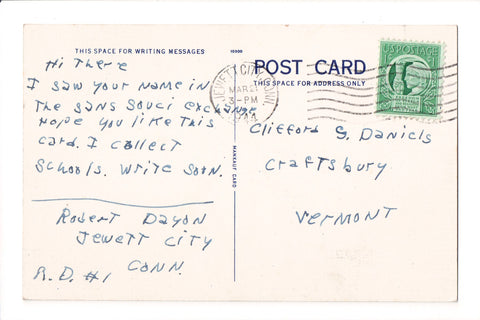 THIS SPACE FOR WRITING MESSAGES
10908
Hi There
I saw your name in
The Sans Souci exchange
Hope you like This
card. I collect
Schools. Write Soon.
Robert Dayon
Jewett City
R.D. #1 Conn.
MARKUP CARD
POST CARD
THIS SPACE FOR ADDRESS ONLY
JEWETT CITY CONN.
MAR 21
3-PM
U.S. POSTAGE
1¢
Clifford S. Daniels
Craftsbury
Vermont